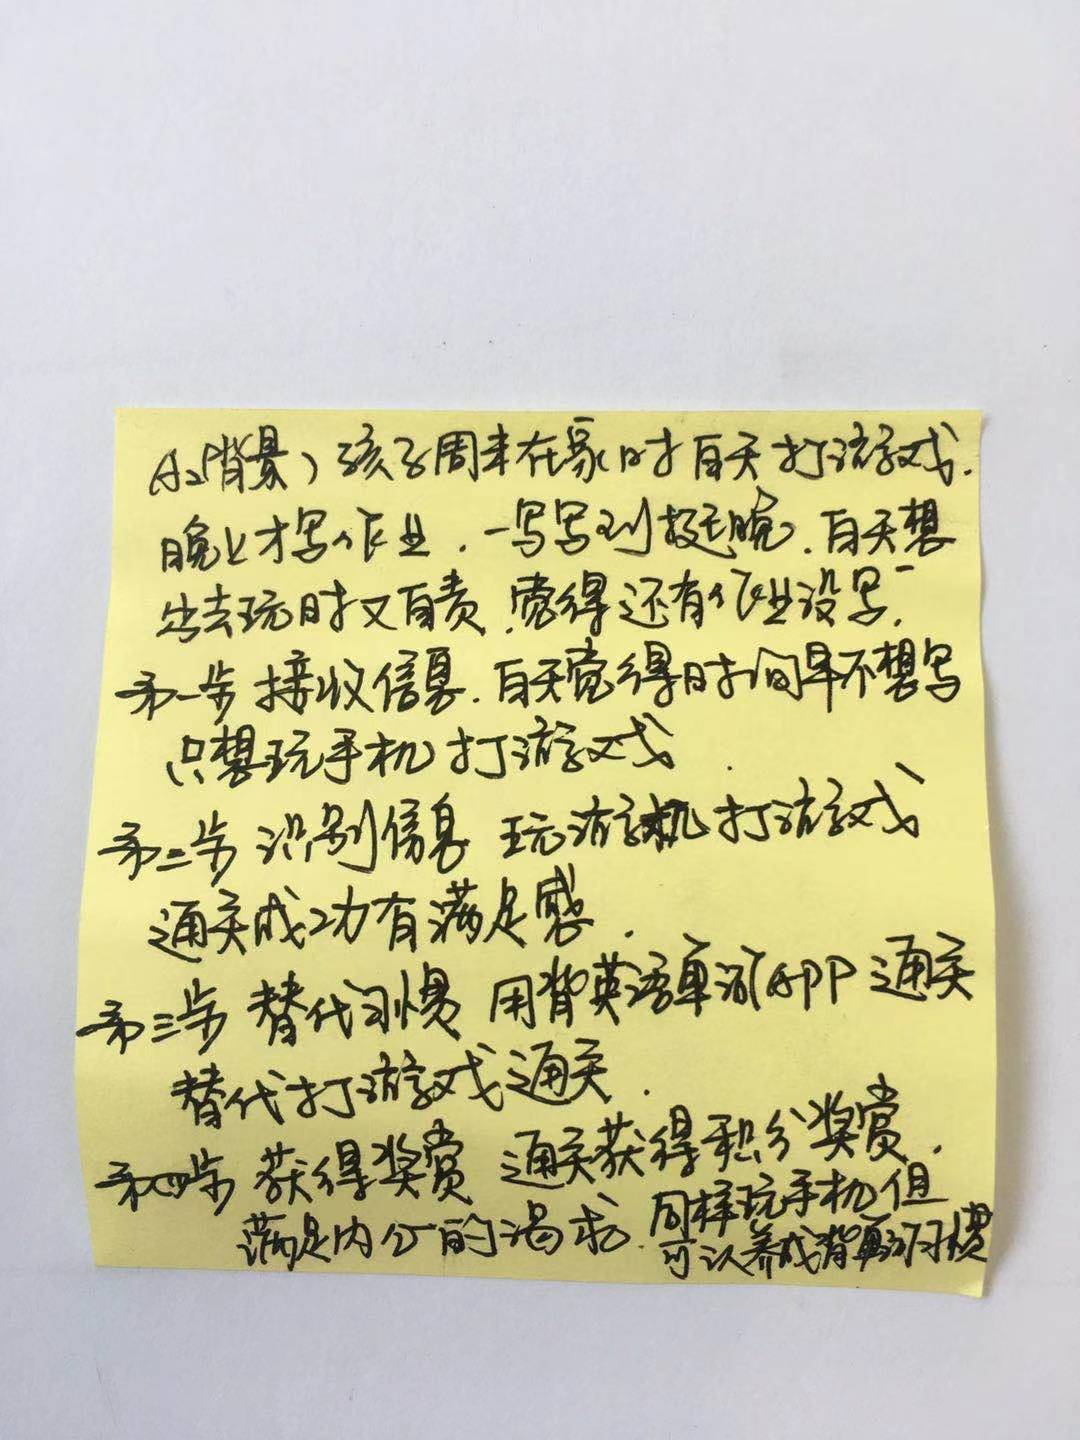 A2(背景)孩子周末在家时白天打游戏.
晚上才写作业.一写写到挺晚.白天想
出去玩时又自责.觉得还有作业没写.
第一步 接收信息.白天觉得时间早不想写
只想玩手机 打游戏.
第二步 识别信息 玩游手机打游戏
通关成功有满足感.
第三步 替代习惯 用背英语单词APP 通关
替代打游戏通关.
第四步 获得奖赏 通关获得积分奖赏.
满足内心的渴求.同样玩手机但
可以养成背单词习惯